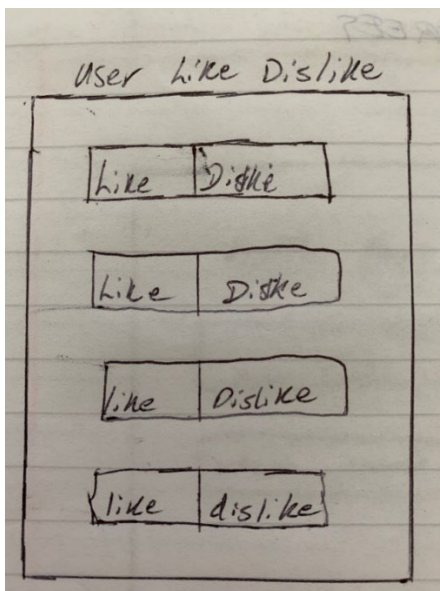 User Like Dislike
Like Diskè
Like Diske
like Dislike
like dislike